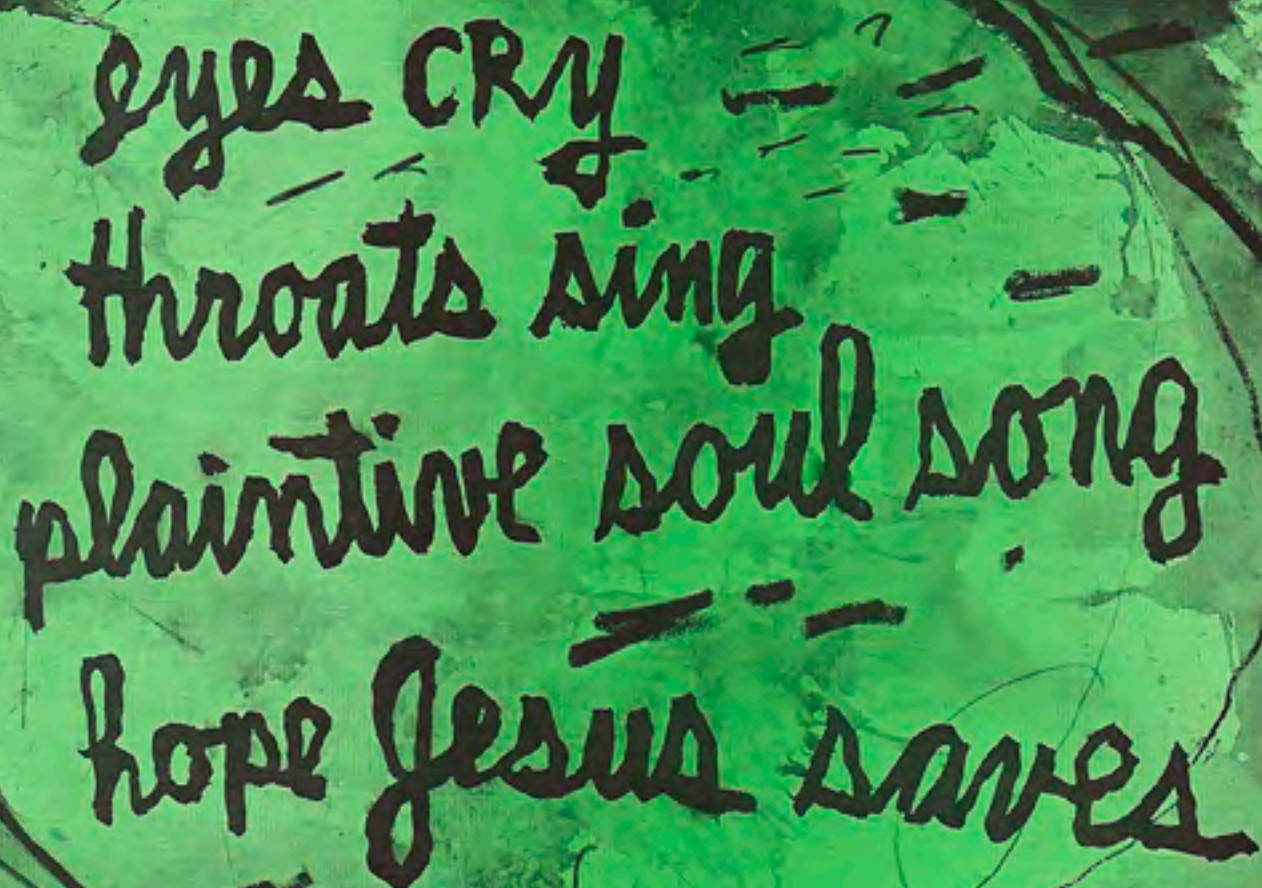 eyes cry
throats sing
plaintive soul song
hope Jesus saves